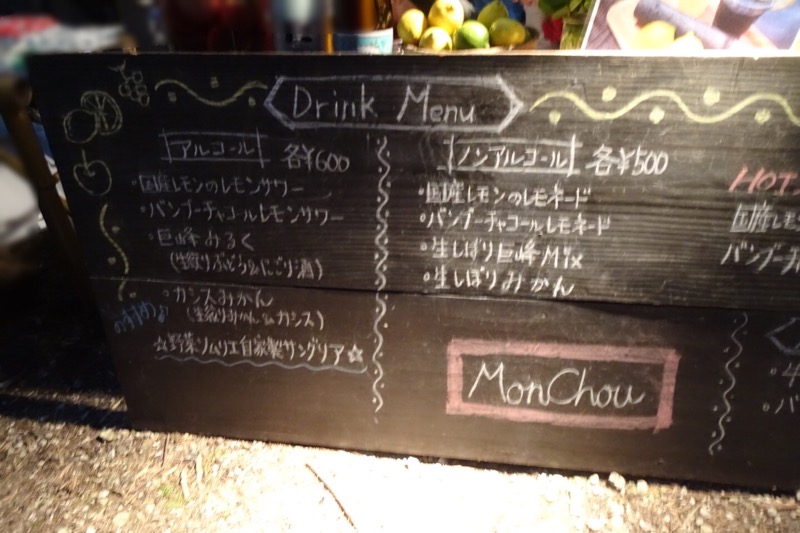 Drink Menu
アルコール 各¥600
・国産レモンのレモンサワー
・バンブーチャコールレモンサワー
・巨峰みるく
(生絞りぶどう&にごり酒)
・カシスみかん
(生絞りみかん&カシス)
おすすめ♪
☆野菜ソムリエ自家製サングリア☆
ノンアルコール 各¥500
・国産レモンのレモネード
・バンブーチャコールレモネード
・生しぼり巨峰Mix
・生しぼりみかん
MonChou
HOT
国産レモ
バンブーチャ
・バ